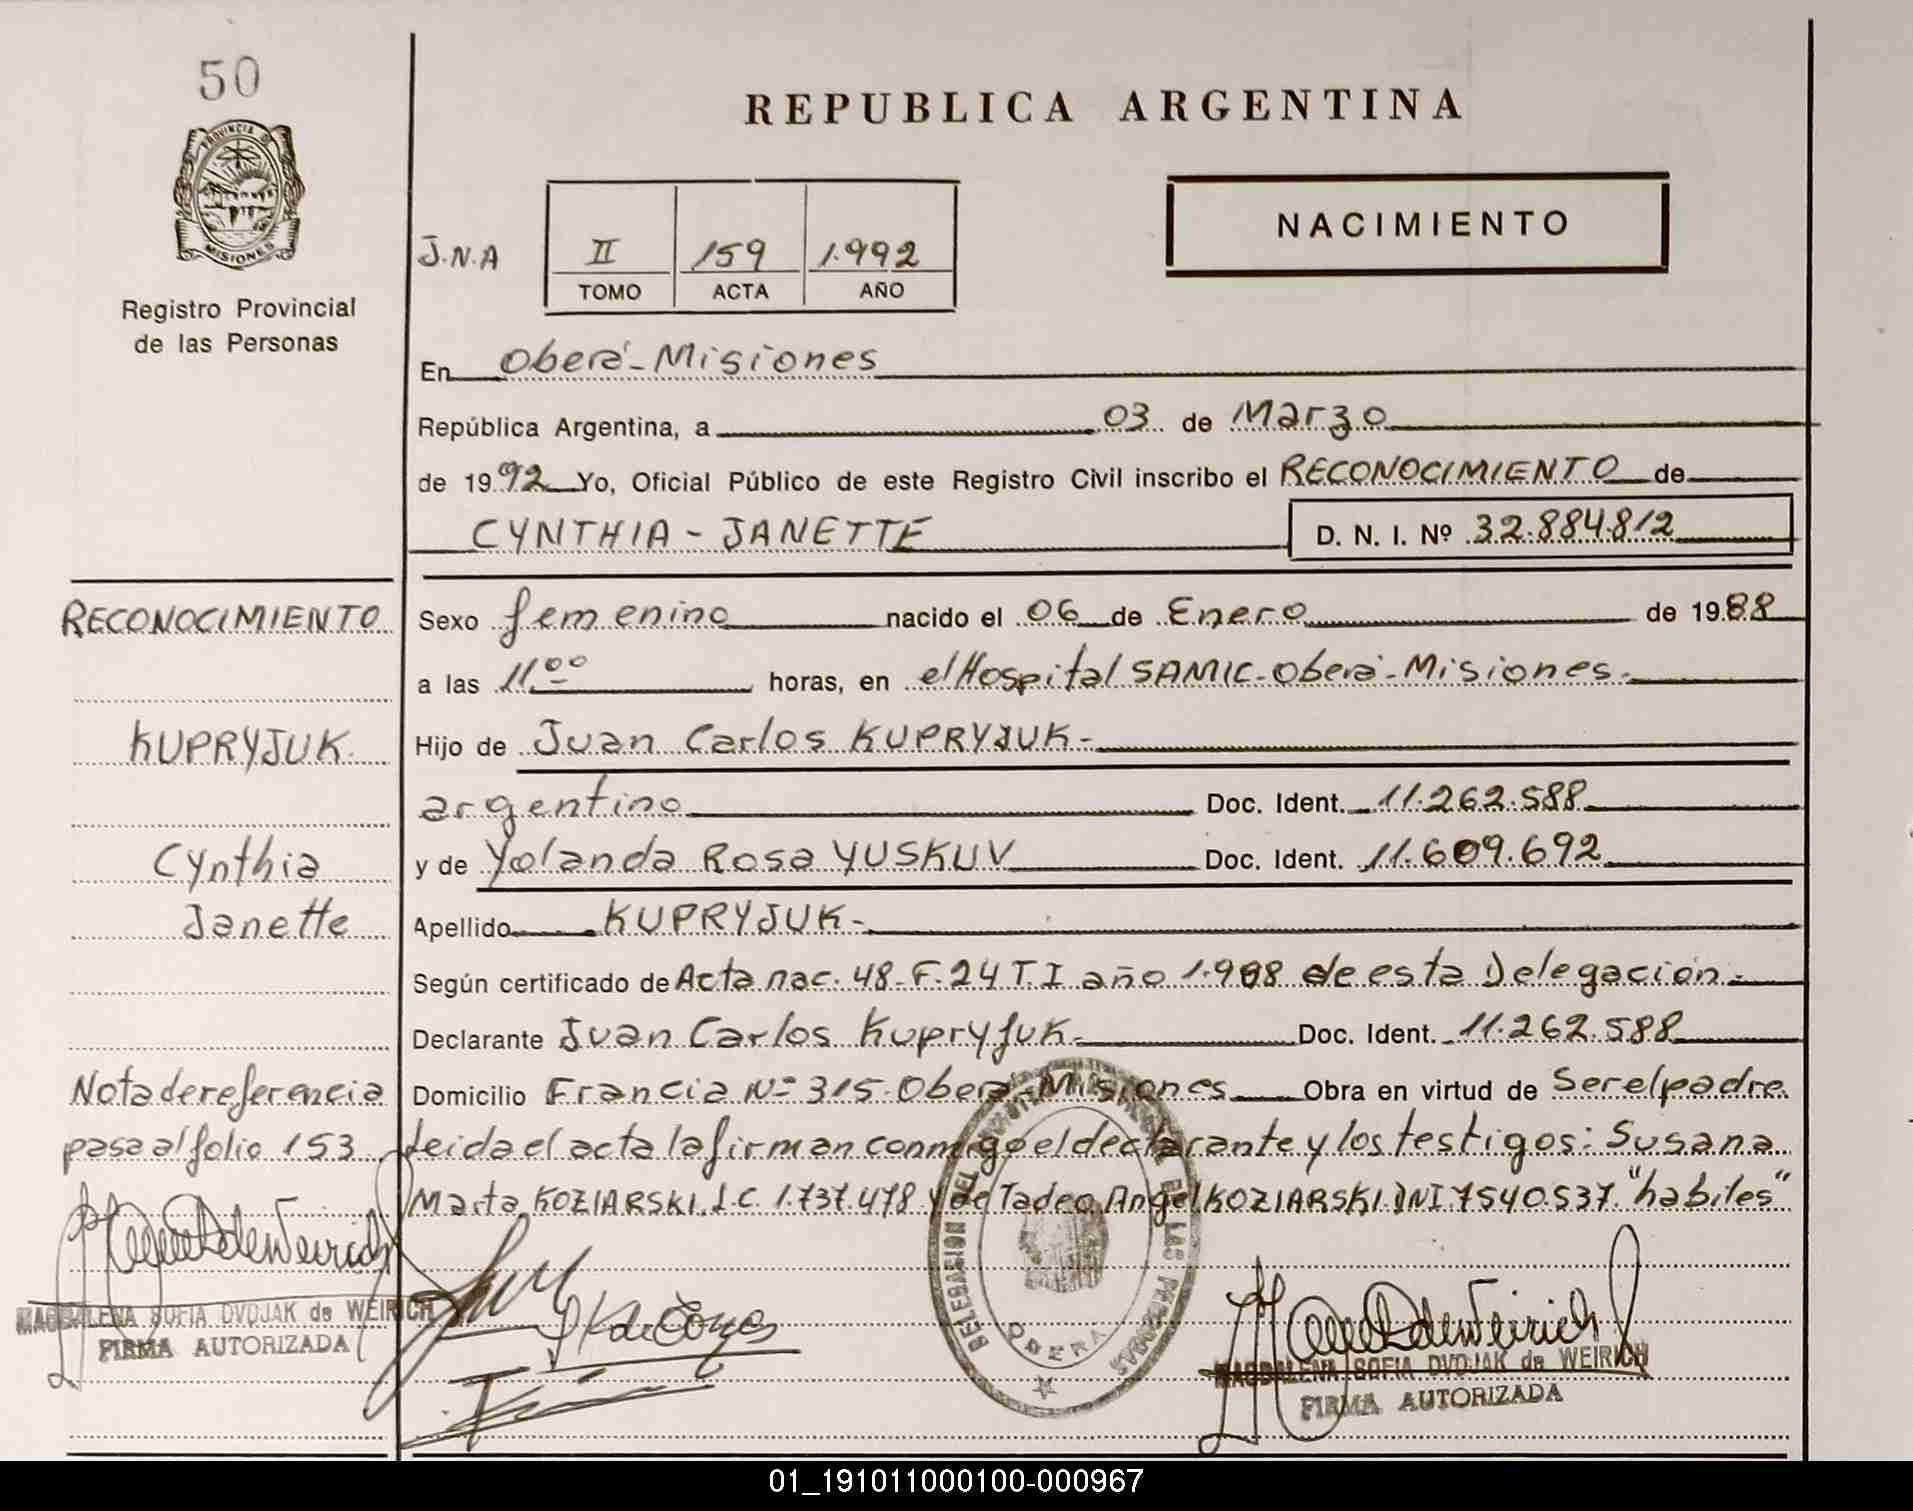 50
PROVINCIA DE
MISIONES
Registro Provincial
de las Personas
REPUBLICA ARGENTINA
NACIMIENTO
J.N.A II 159 1.992
TOMO ACTA AÑO
En Oberá-Misiones
República Argentina, a 03 de Marzo
de 1992 Yo, Oficial Público de este Registro Civil inscribo el RECONOCIMIENTO de
CYNTHIA - JANETTE D. N. I. Nº 32.884.812
RECONOCIMIENTO
KUPRYJUK.
Cynthia
Janette
Sexo femenino nacido el 06 de Enero de 1988
a las 11ºº horas, en el Hospital SAMIC-Oberá-Misiones.
Hijo de Juan Carlos KUPRYJUK-
argentino Doc. Ident. 11.262.588
y de Yolanda Rosa YUSKUV Doc. Ident. 11.609.692
Apellido KUPRYJUK-
Según certificado de Acta nac. 48-F-24 T.I año 1.988 de esta Delegación.-
Declarante Juan Carlos Kupryjuk- Doc. Ident. 11.262.588
Domicilio Francia Nº 315-Oberá-Misiones Obra en virtud de Ser el padre
Leida el acta la firman conmigo el declarante y los testigos: Susana
Marta KOZIARSKI L.C. 1.737.478 y de Tadeo Angel KOZIARSKI DNI 7540.537. "habiles"
Nota de referencia
pasa al folio 153
MAGDALENA SOFIA DVOJAK de WEIRICH
FIRMA AUTORIZADA
DELEGACION DEL DE LAS PERSONAS
OBERA
MAGDALENA SOFIA DVOJAK de WEIRICH
FIRMA AUTORIZADA
01_191011000100-000967